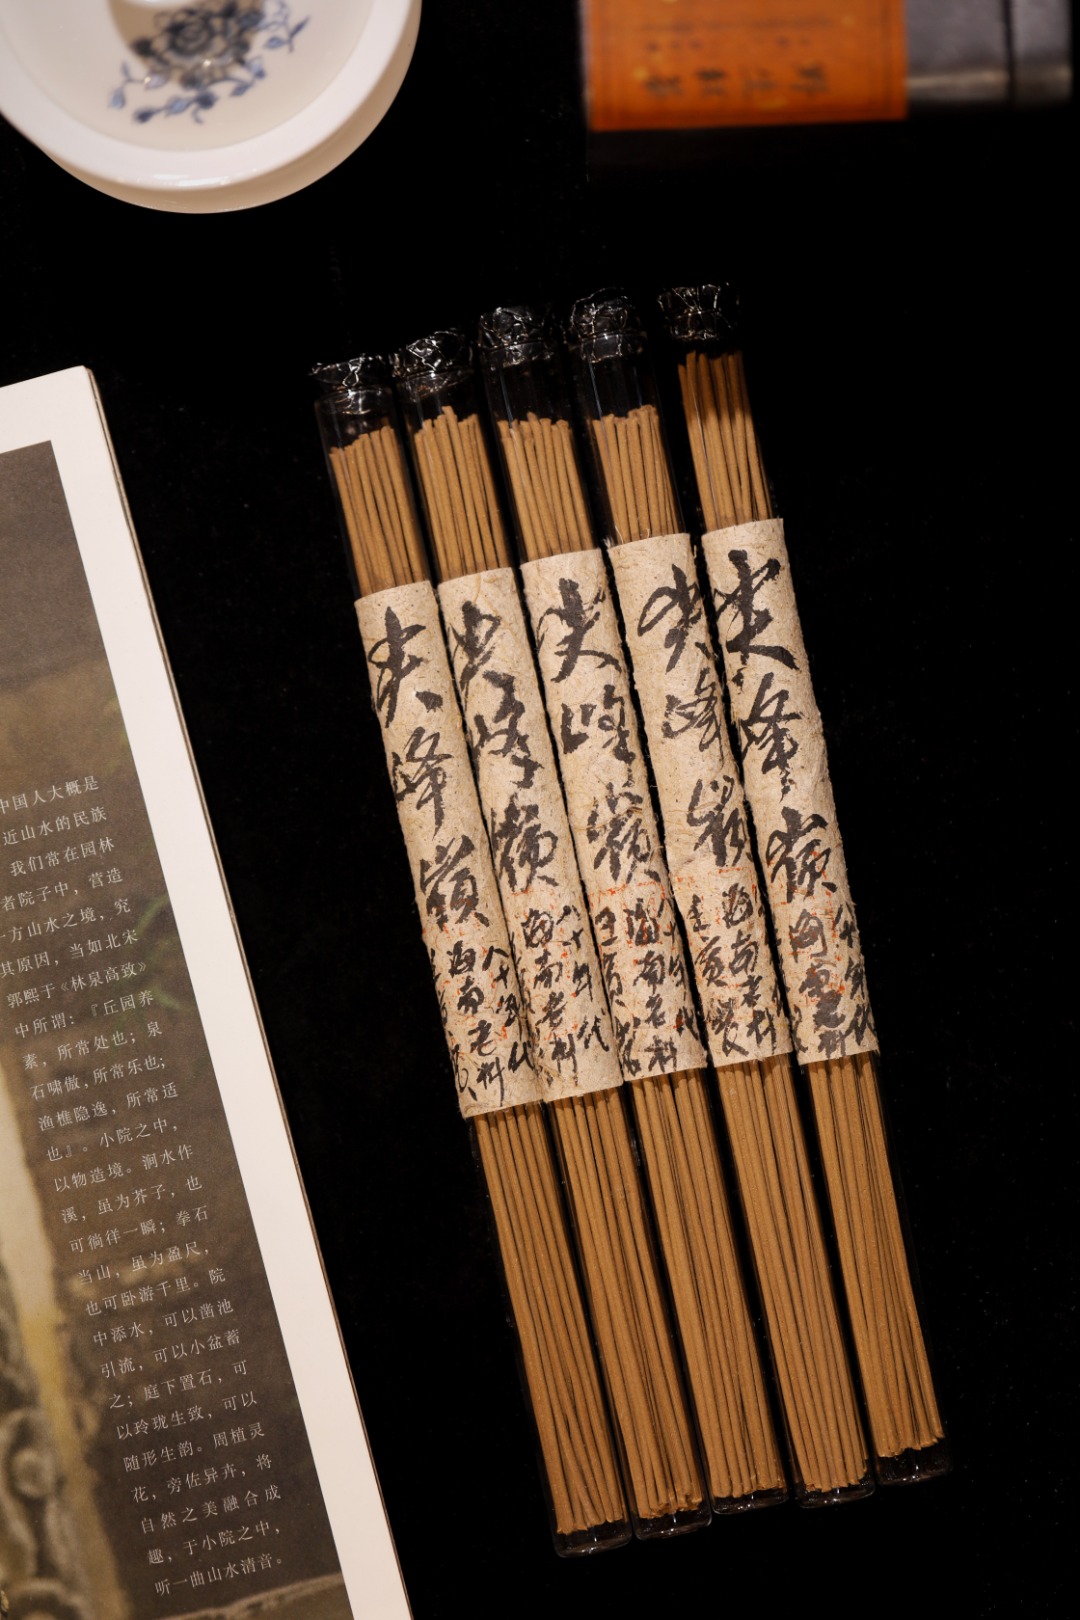 中国人大概是
近山水的民族
我们常在园林
者院子中，营造
一方山水之境，究
其原因，当如北宋
郭熙于《林泉高致》
中所谓：『丘园养
素，所常处也；泉
石啸傲，所常乐也；
渔樵隐逸，所常适
也』。小院之中，
以物造境。涧水作
溪，虽为芥子，也
可徜徉一瞬；拳石
当山，虽为盈尺，
也可卧游千里。院
中添水，可以凿池
引流，可以小盆蓄
之；庭下置石，可
以玲珑生致，可以
随形生韵。周植灵
花，旁佐异卉，将
自然之美融合成
趣，于小院之中，
听一曲山水清音。
尖峰嶺
八十年代
海南老料
尖峰嶺
八十年代
海南老料
尖峰嶺
八十年代
海南老料
尖峰嶺
海南老料
尖峰嶺
八十年代
海南老料